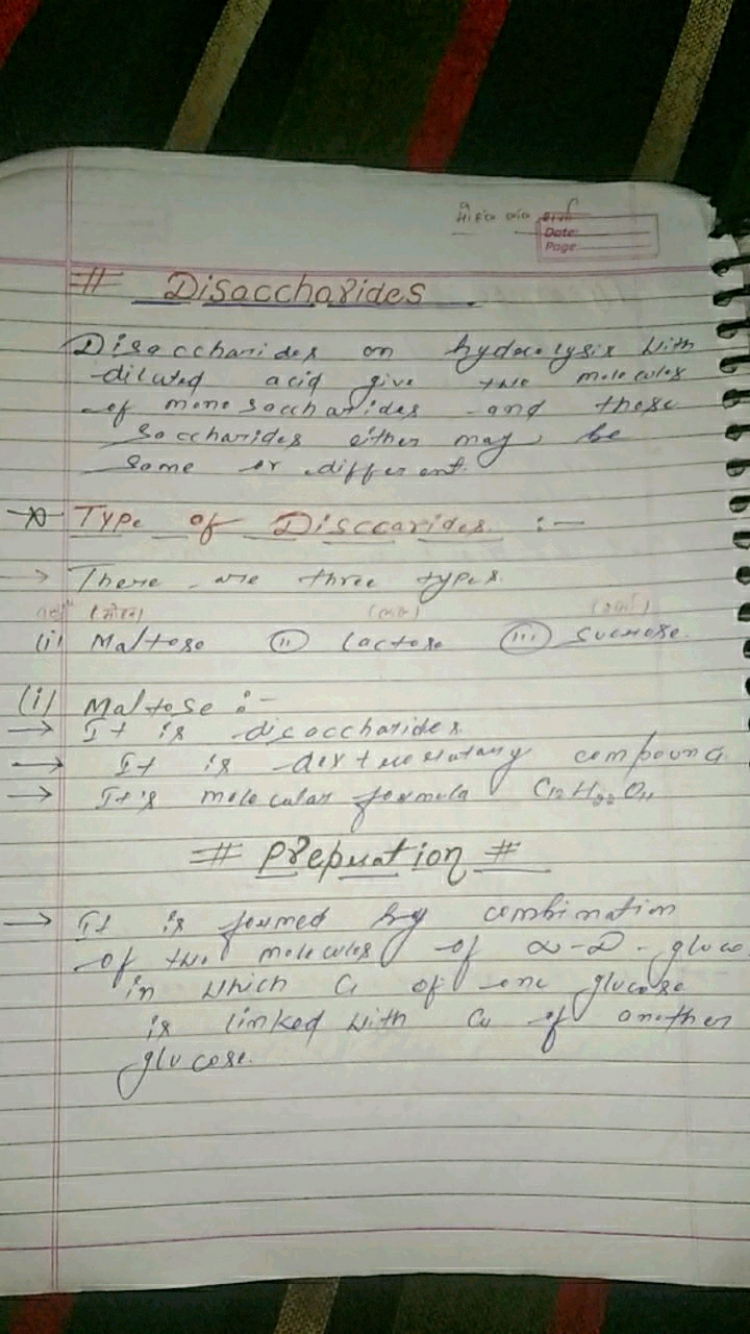 Date:
Page
# Disaccharides
Disaccharides on hydrolysis with
diluted acid give two molecules
of monosaccharides and these
saccharides either may be
same or different.
Type of Disccarides :-
→ There are three types.
(i) Maltose (ii) Lactose (iii) Sucrose.
(i) Maltose :-
→ It is disaccharides.
→ It is dextrorotary compound
→ It's molecular formula C12H22O11
# Prepration #
→ It is formed by combination
of two molecules of α-D-gluco
in which C1 of one glucose
is linked with C4 of another
glucose.